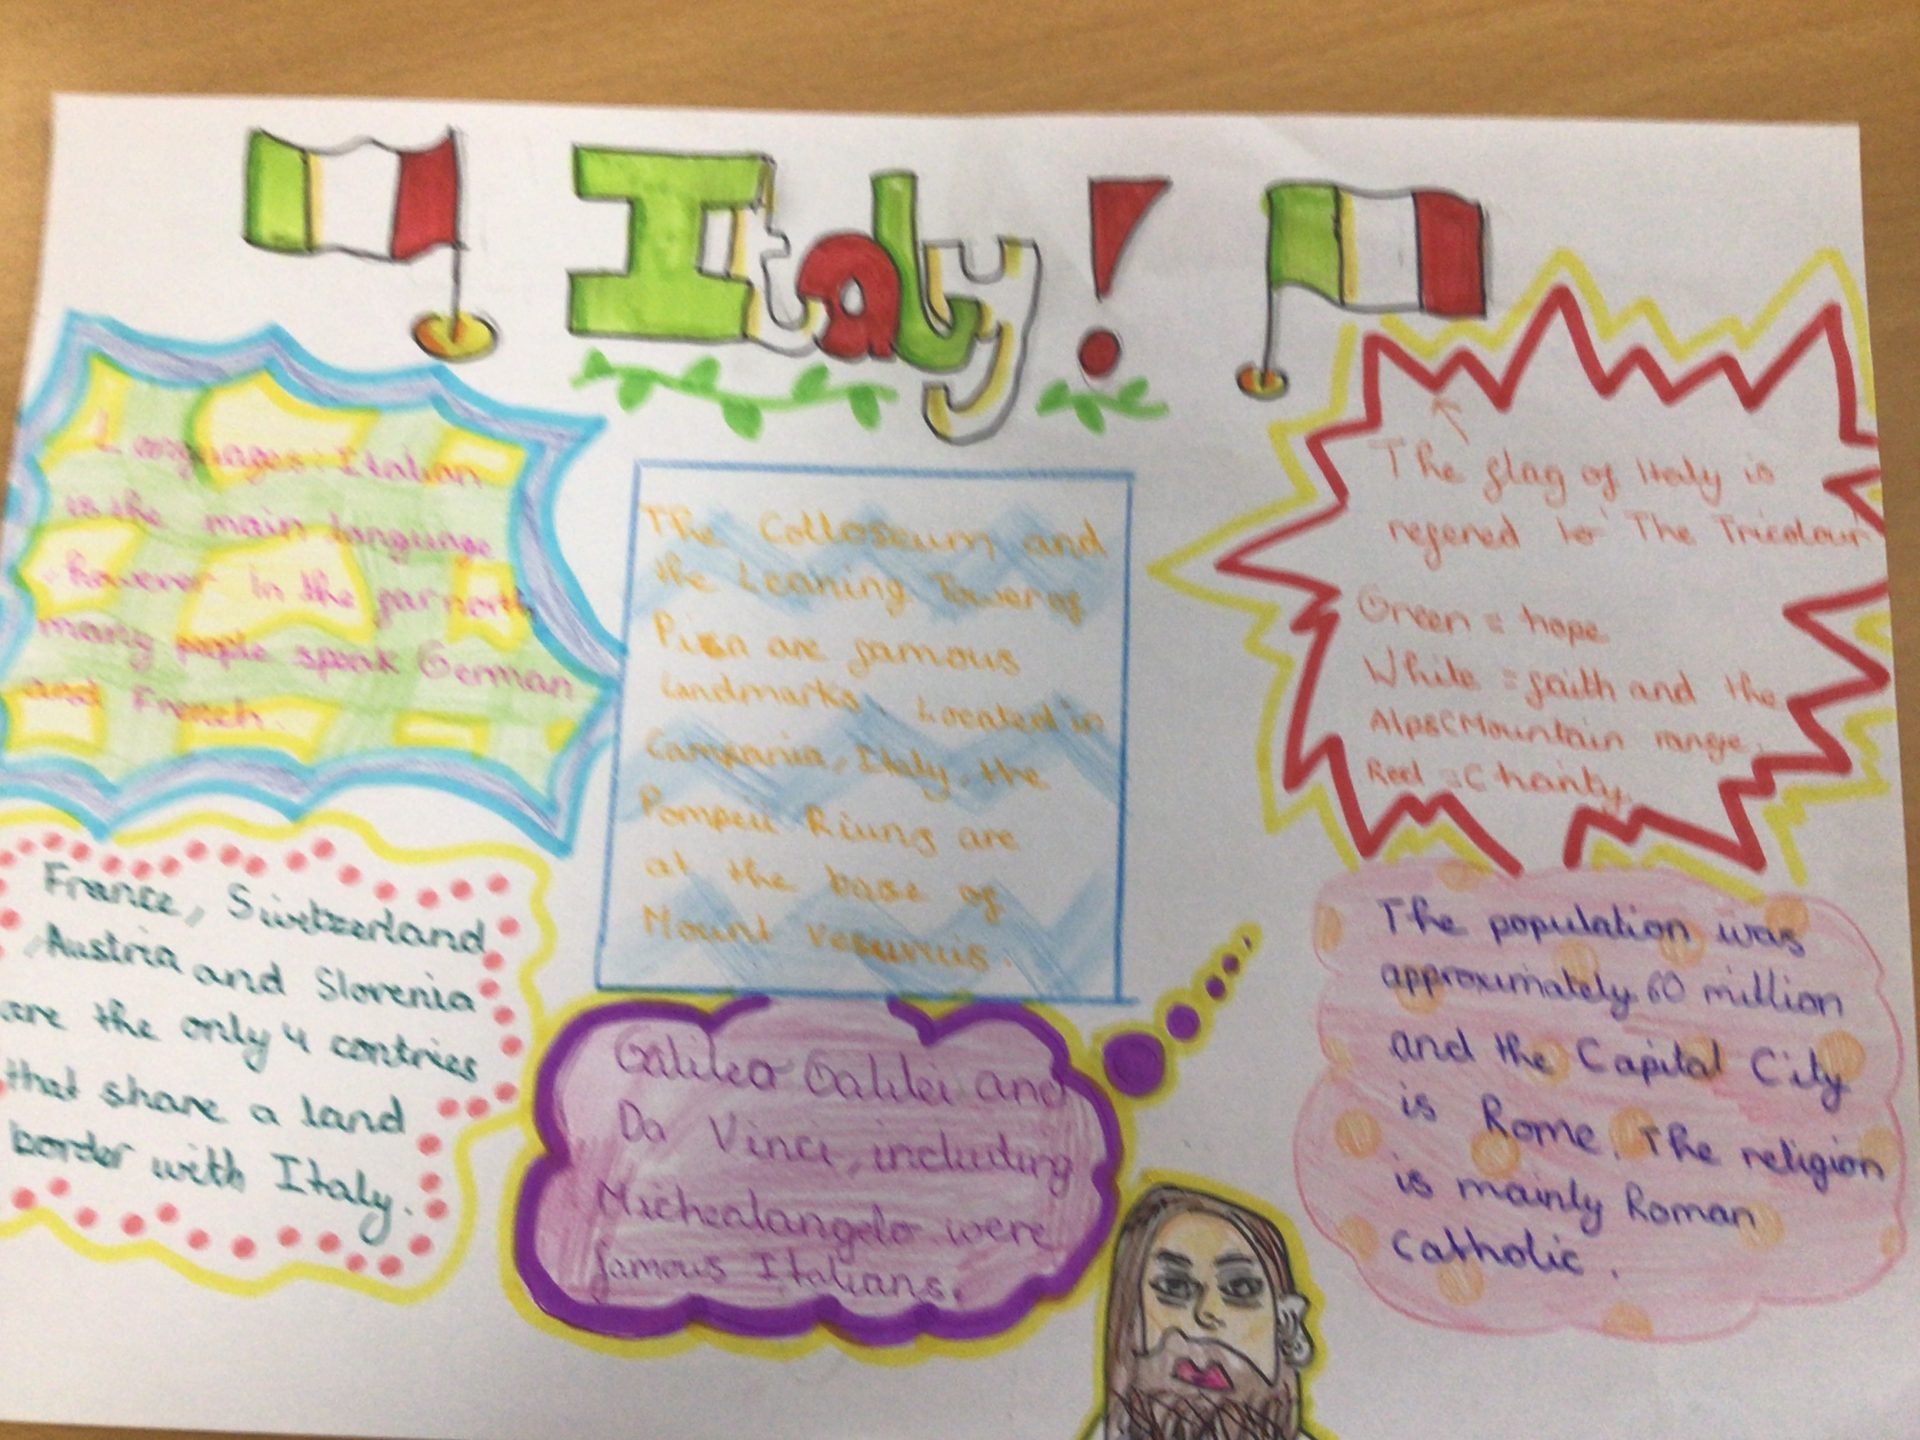 Italy!
Languages: Italian
is the main language
however in the far north,
many people speak German
and French.
The Colloseum and
the Leaning Tower of
Pisa are famous
landmarks. Located in
Campania, Italy, the
Pompeii Riung are
at the base of
Mount Vesuvuis.
The flag of Italy is
refered to 'The Tricolour
Green = hope
White = faith and the
Alps(Mountain range.
Red = Charity.
France, Switzerland,
Austria and Slovenia
are the only 4 contries
that share a land
border with Italy.
Galileo Galilei and
Da Vinci, including
Michealangelo were
famous Italians.
The population was
approximately 60 million
and the Capital City
is Rome. The religion
is mainly Roman
Catholic.